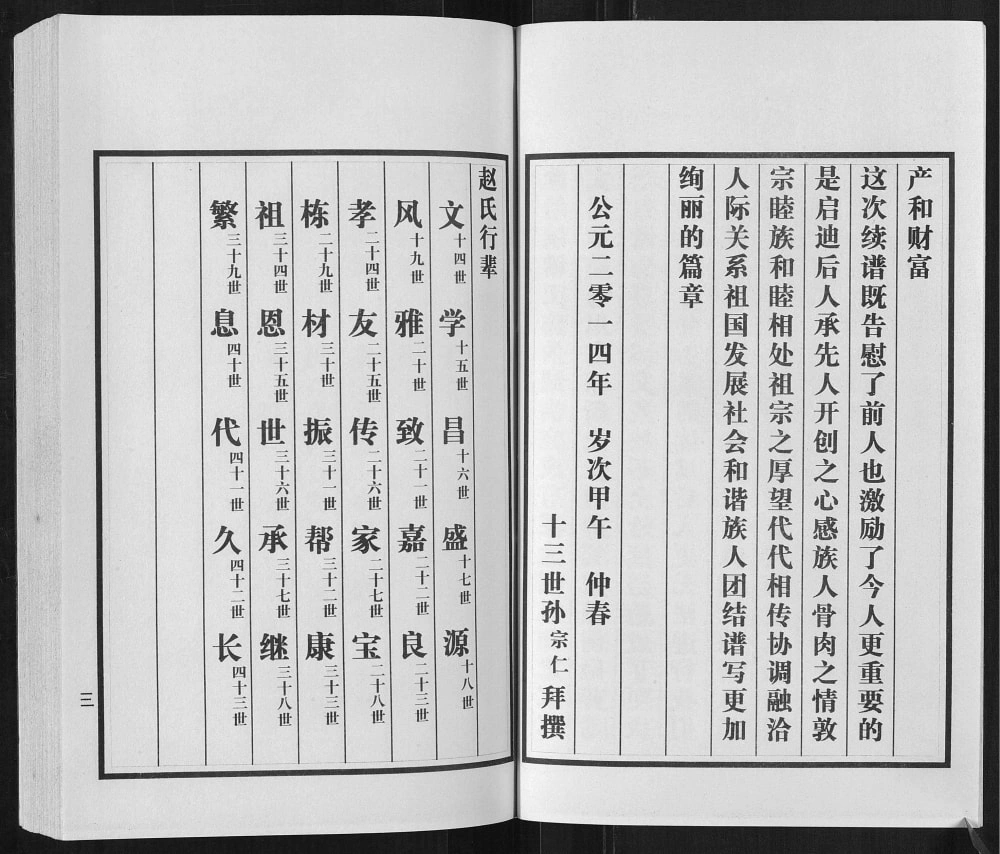 产和财富
这次续谱既告慰了前人也激励了今人更重要的
是启迪后人承先人开创之心感族人骨肉之情敦
宗睦族和睦相处祖宗之厚望代代相传协调融洽
人际关系祖国发展社会和谐族人团结谱写更加
绚丽的篇章
公元二零一四年 岁次甲午 仲春
十三世孙宗仁拜撰
赵氏行辈
文十四世 学十五世 昌十六世 盛十七世 源十八世
风十九世 雅二十世 致二十一世 嘉二十二世 良二十三世
孝二十四世 友二十五世 传二十六世 家二十七世 宝二十八世
栋二十九世 材三十世 振三十一世 帮三十二世 康三十三世
祖三十四世 恩三十五世 世三十六世 承三十七世 继三十八世
繁三十九世 息四十世 代四十一世 久四十二世 长四十三世
三